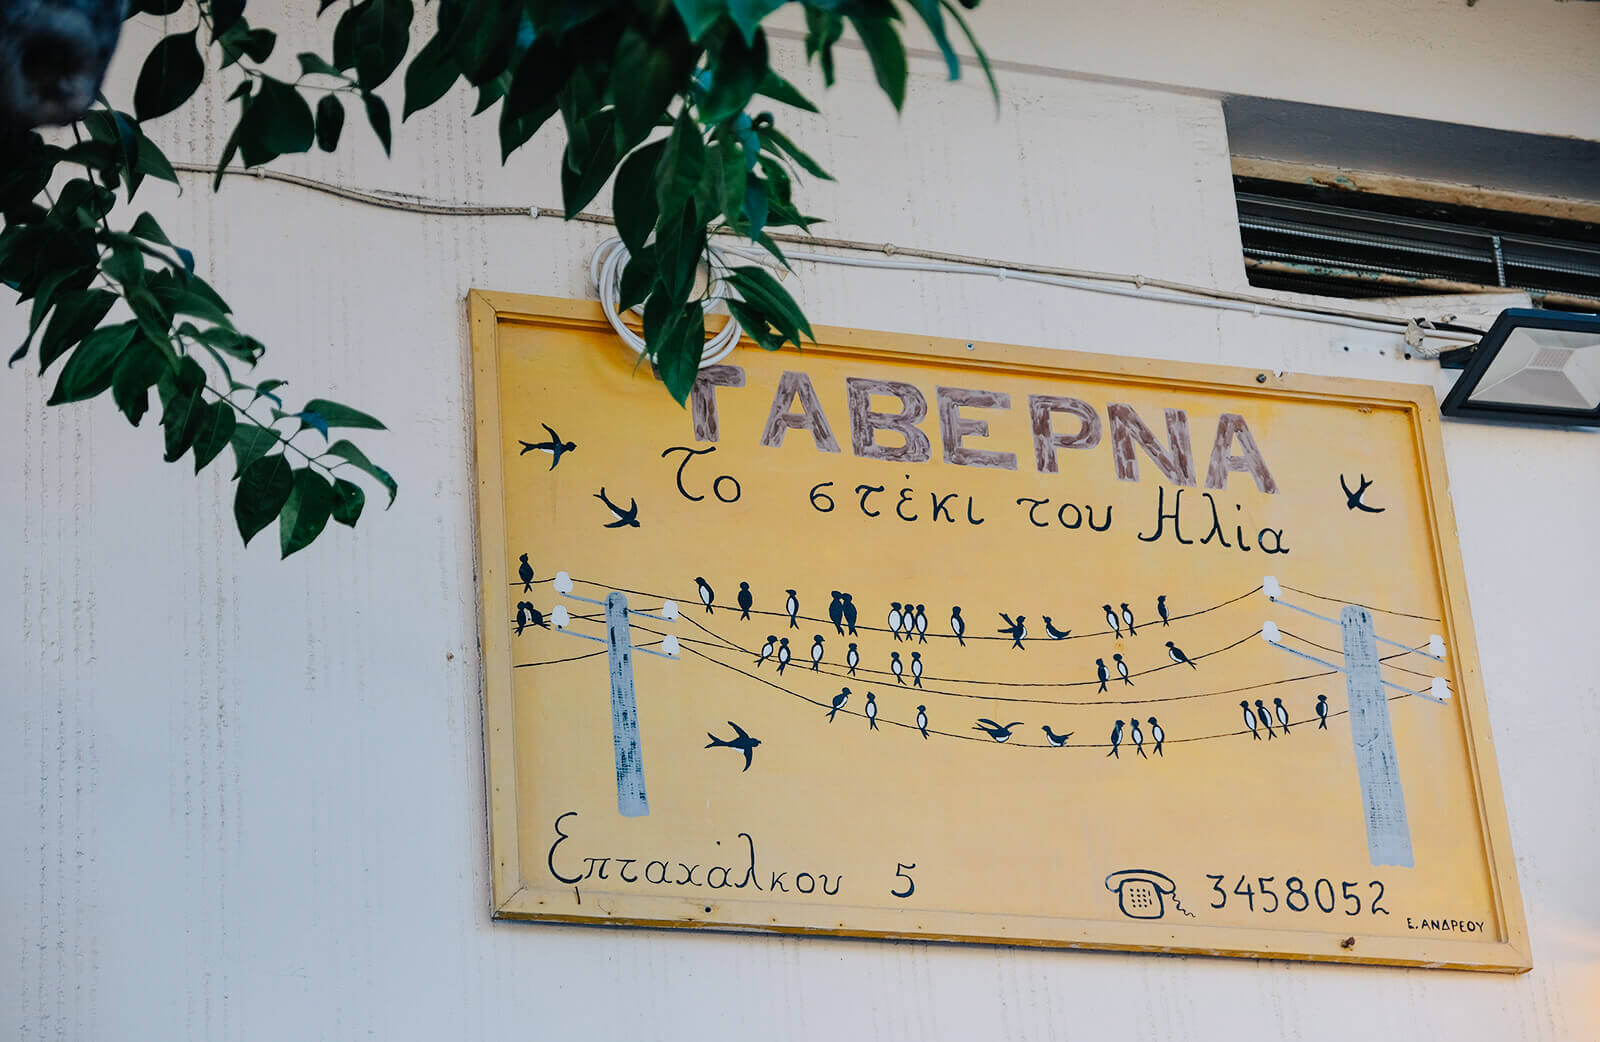 ΤΑΒΕΡΝΑ
Το στέκι του Ηλία
Επταχάλκου 5
3458052
Ε. ΑΝΔΡΕΟΥ